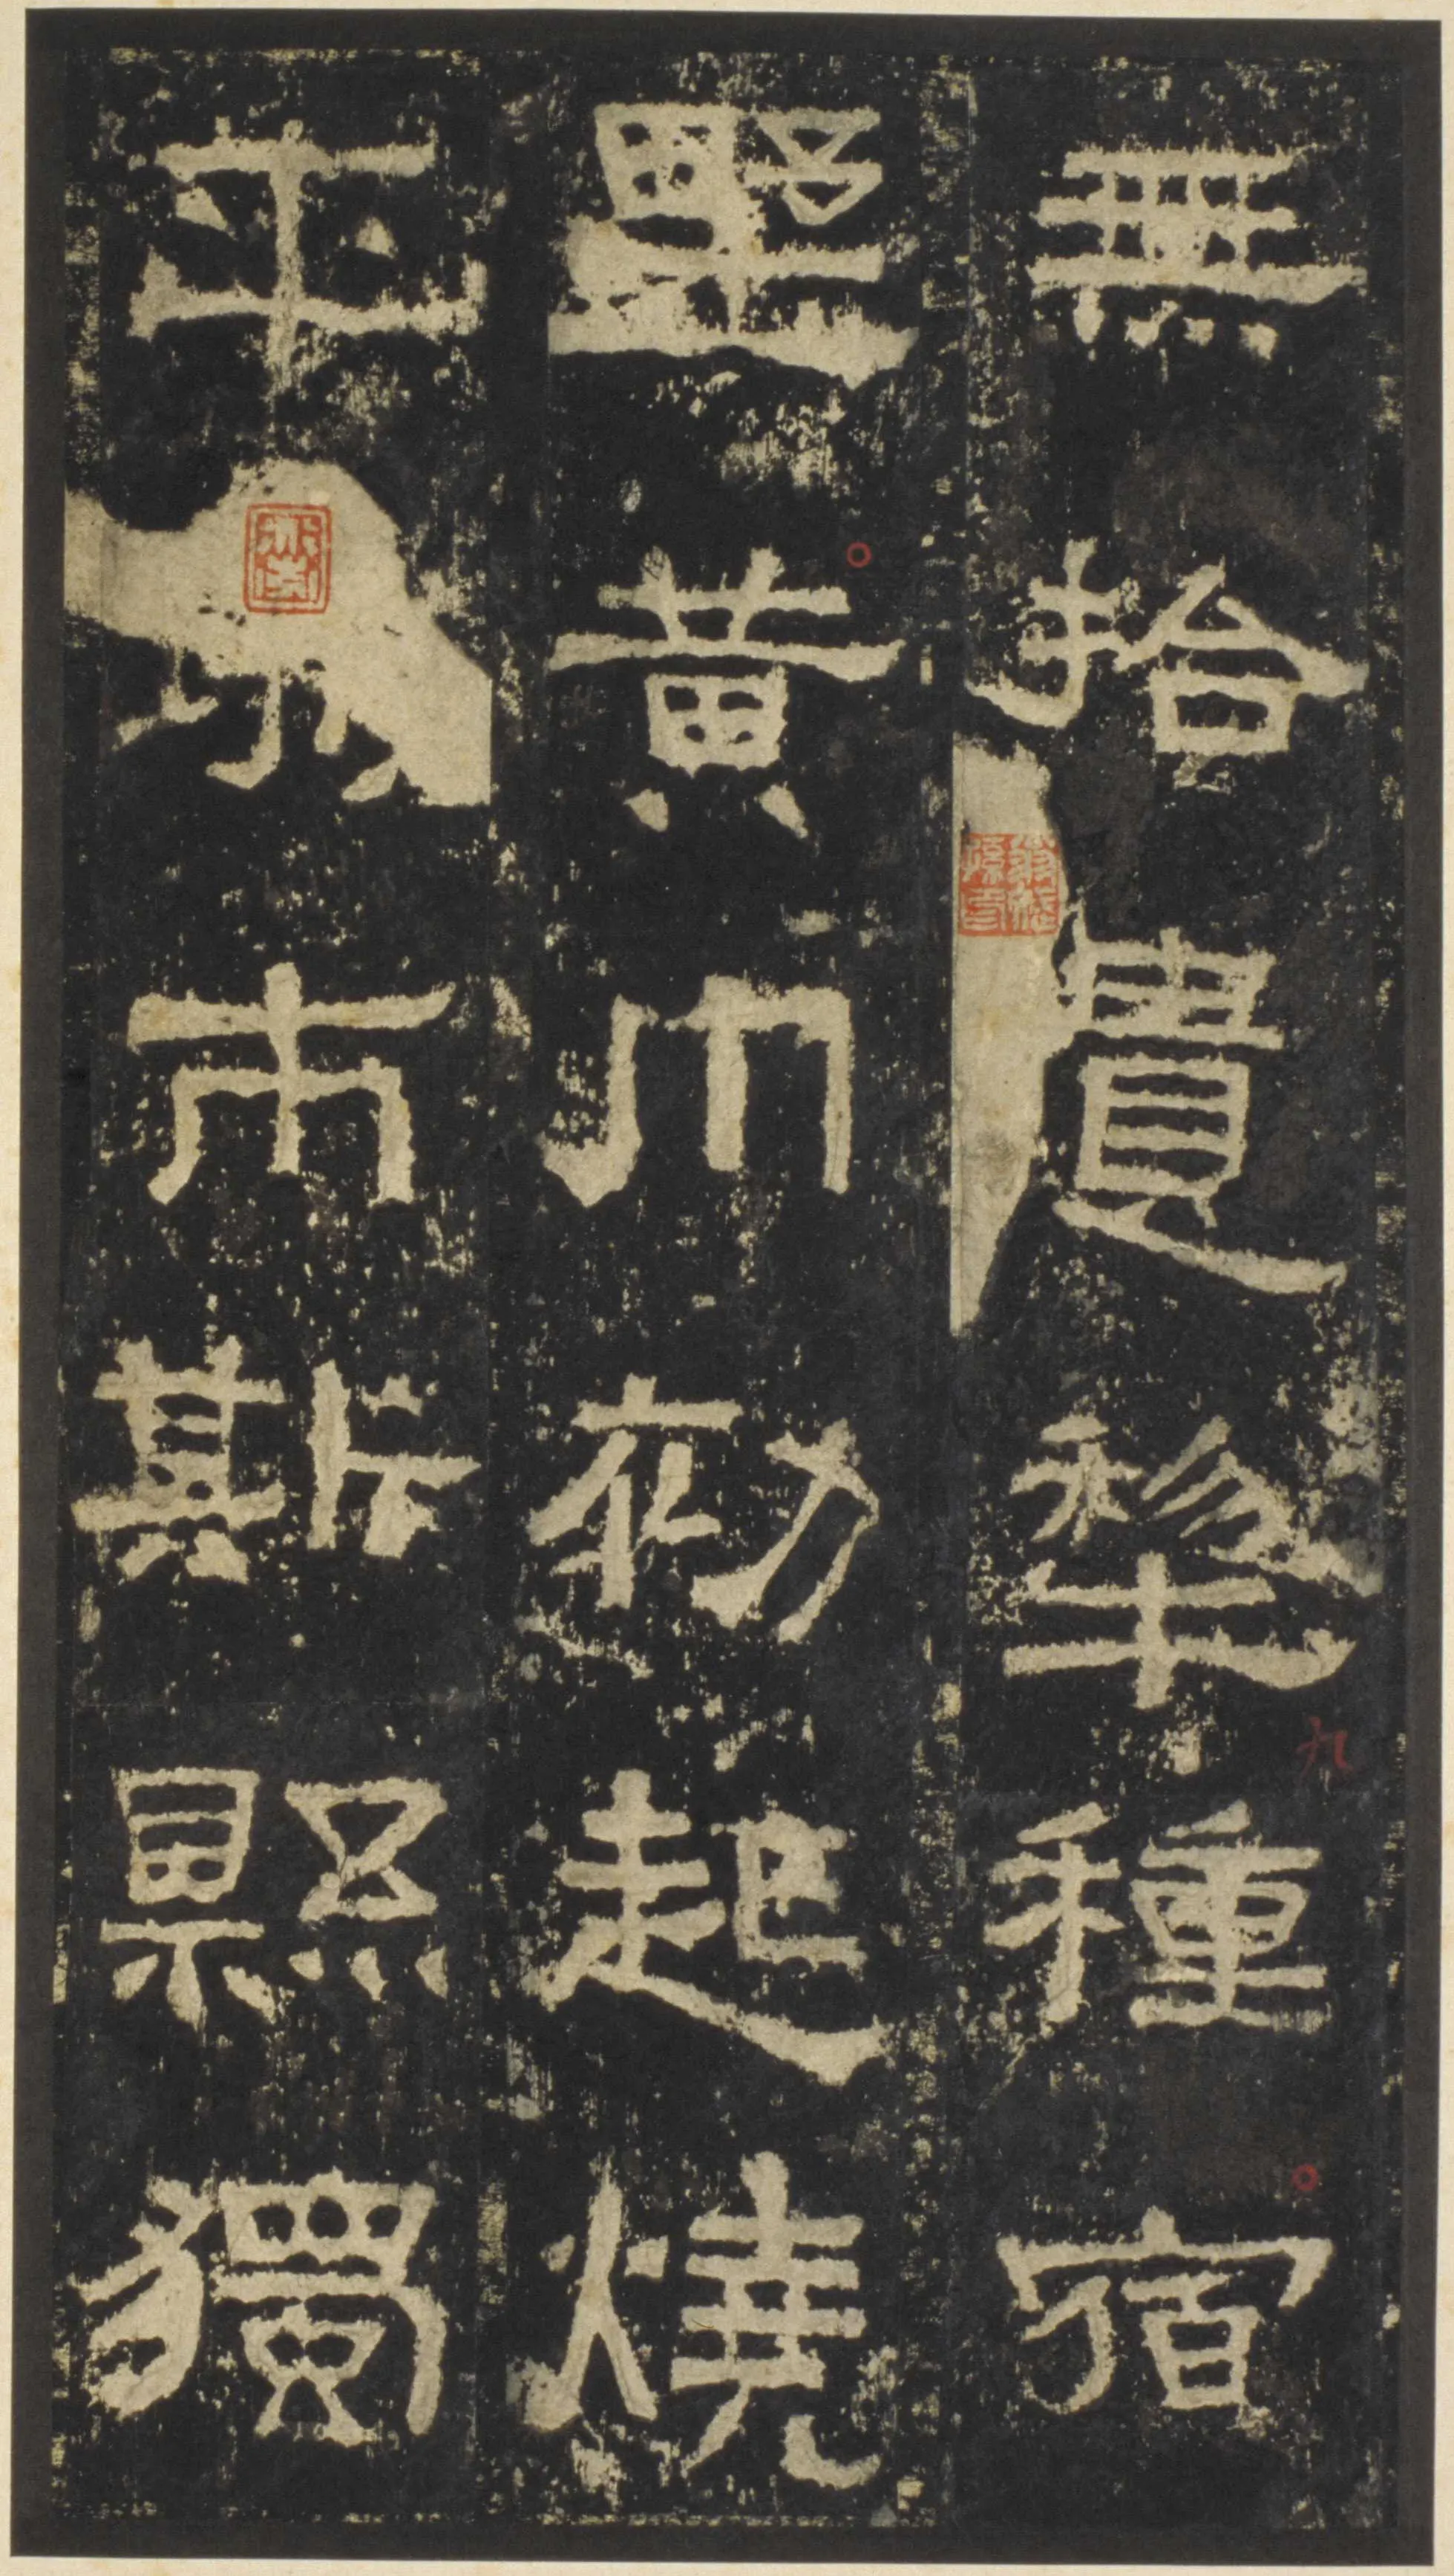 無拾遺犂種宿
墅黃巾初起燒
平市斯縣獨
九